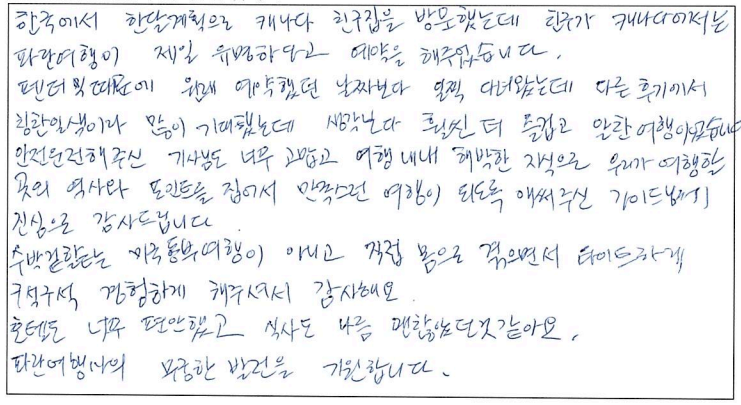 한국에서 한달계획으로 캐나다 친구집을 방문했는데 친구가 캐나다에서는
파란여행이 제일 유명하다고 예약을 해주었습니다.
펜더믹때문에 원래 예약했던 날짜보다 일찍 다녀왔는데 다른 후기에서
칭찬일색이라 많이 기대했는데 생각보다 훨씬 더 즐겁고 알찬여행이었습니다
안전운전해주신 기사님도 너무 고맙고 여행내내 해박한 지식으로 우리가 여행할
곳의 역사와 포인트를 집어서 만족스런 여행이 되도록 애써주신 가이드님께
진심으로 감사드립니다.
수박겉핥는 미국동부여행이 아니고 직접 몸으로 겪으면서 타이트하게
구석구석 경험하게 해주셔서 감사해요.
호텔도 너무 편안했고 식사도 나름 괜찮았던것같아요.
파란여행사의 무궁한 발전을 기원합니다.